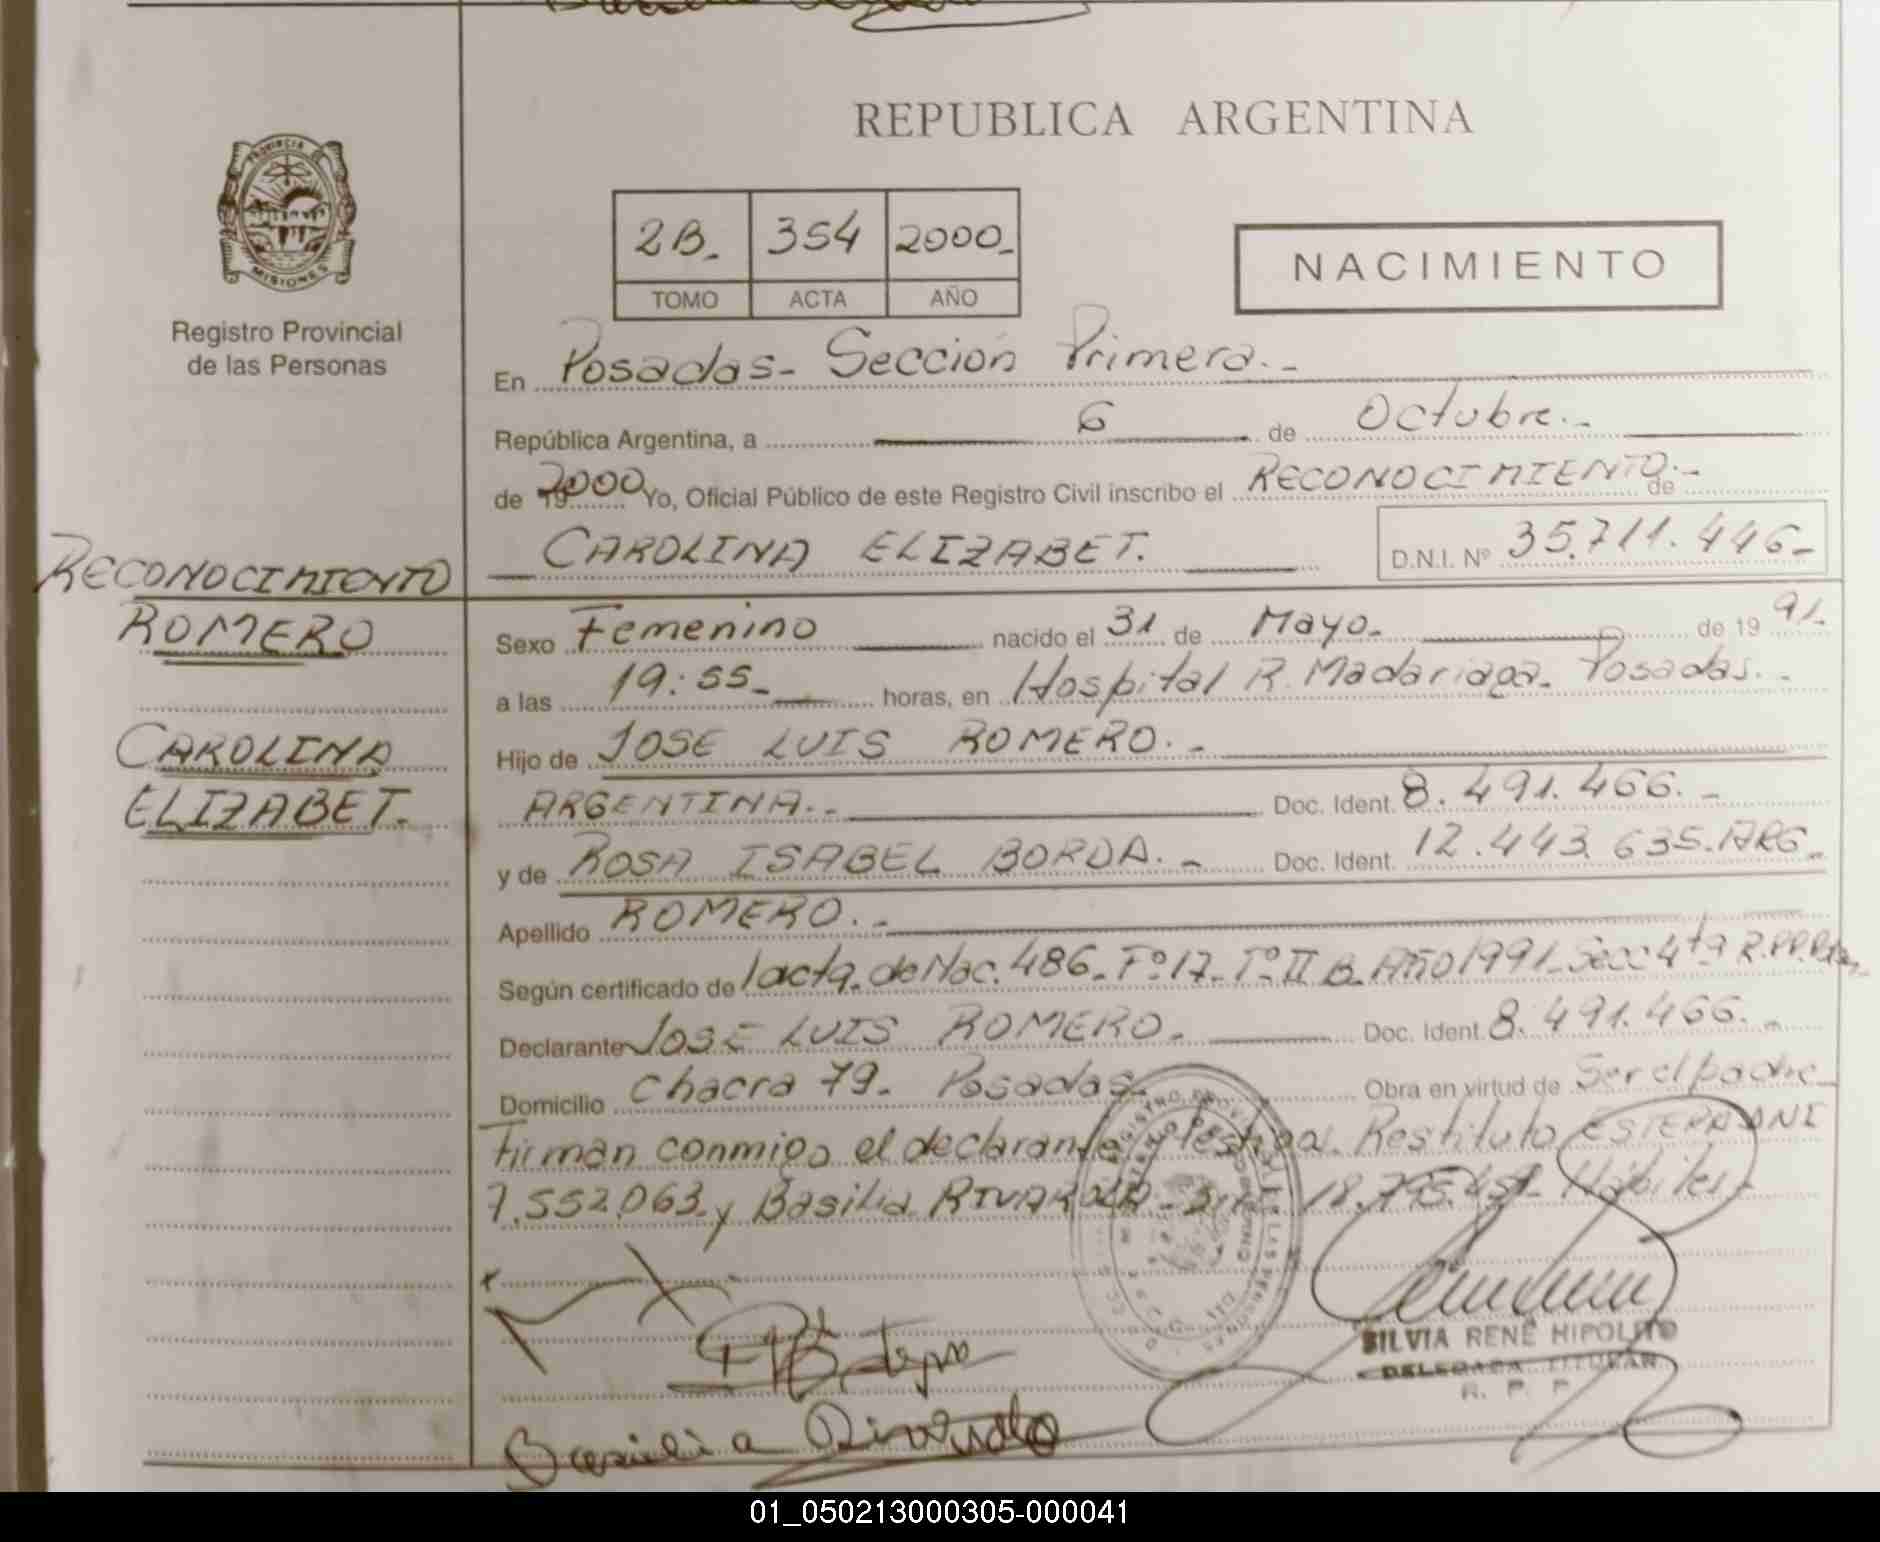 REPUBLICA ARGENTINA
PROVINCIA DE
MISIONES
Registro Provincial
de las Personas
2B. 354 2000
TOMO ACTA AÑO
NACIMIENTO
En Posadas - Sección Primera.-
República Argentina, a 6 de Octubre.-
de 2000 Yo, Oficial Público de este Registro Civil inscribo el RECONOCIMIENTO.- de
CAROLINA ELIZABET. D.N.I. Nº 35.711.446-
RECONOCIMIENTO
ROMERO
CAROLINA
ELIZABET.
Sexo Femenino nacido el 31 de Mayo- de 19 91.
a las 19:55- horas, en Hospital R. Madariaga- Posadas.-
Hijo de JOSE LUIS ROMERO.-
ARGENTINA.- Doc. Ident. 8.491.466.-
y de ROSA ISABEL BORDA.- Doc. Ident. 12.443.635.ARG-
Apellido ROMERO.-
Según certificado de 1 acta de Nac. 486- Fº 17- Tº II B- AÑO 1991- Secc 4ta
Declarante JOSE LUIS ROMERO- Doc. Ident. 8.491.466.-
Domicilio Chacra 79- Posadas- Obra en virtud de Ser el padre-
Firman conmigo el declarante Restituto DNI
7.552.063 y Basilia RIVAROLA Hábiles-
Basilia
SILVIA RENÉ HIPOLITO
DELEGADA TITULAR
R. P. P.
01_050213000305-000041